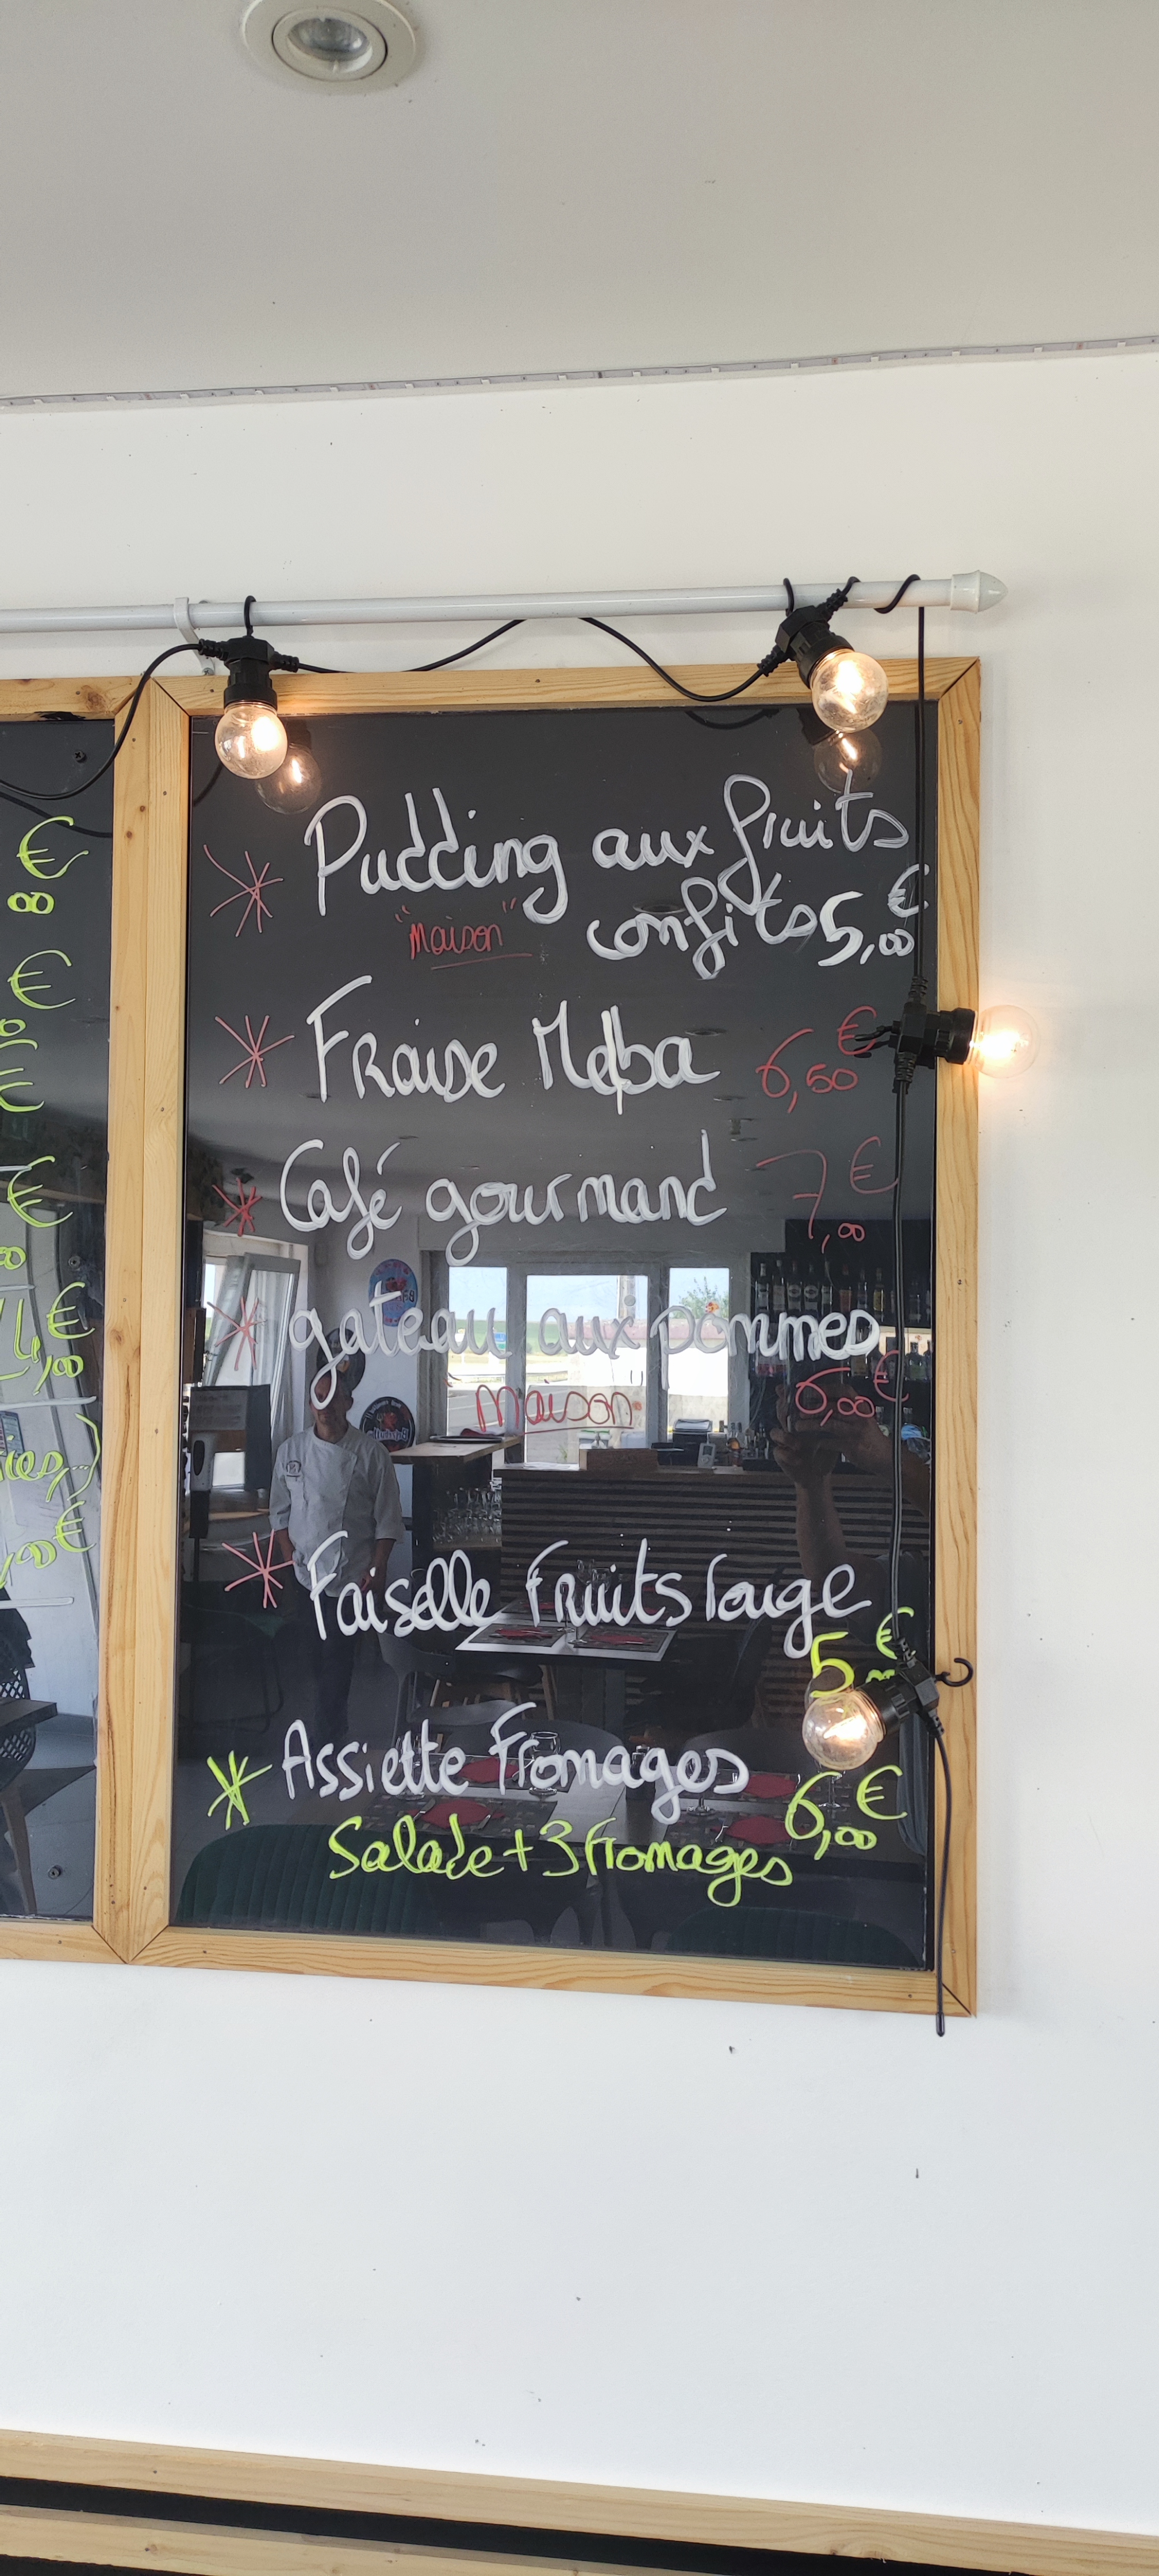 €
00
€
€
€
00
4,00€
ies)
,00€
Pudding aux fruits
"Maison" confits 5,00€
Fraise Melba 6,50€
Café gourmand 7,00€
gateau aux pommes
Maison 6,00€
Faiselle Fruits rouge
5 €
Assiette Fromages
6,00€
Salade + 3 Fromages